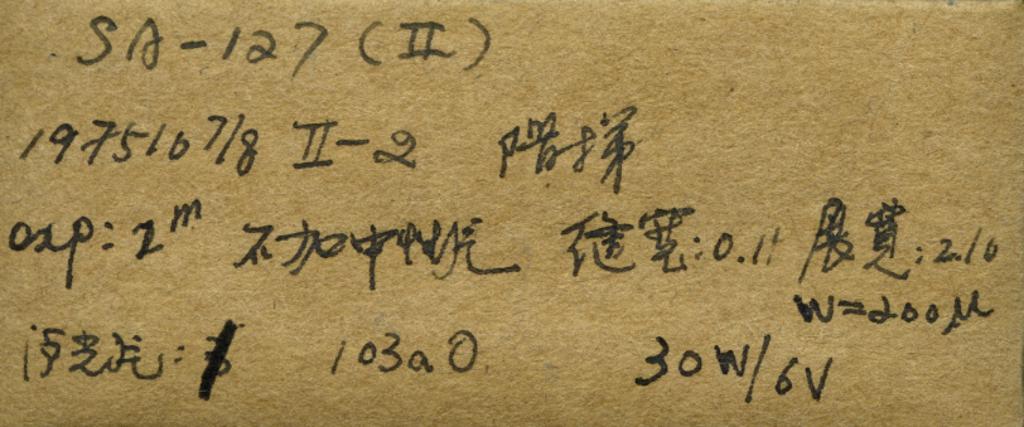 SA-127 (II)
1975 10 7/8 II-2 階梯
exp: 2ᵐ 不加中性 缝宽: 0.11 展寬: 2.10
W=200μ
滤光 : 103aO 30W/6V